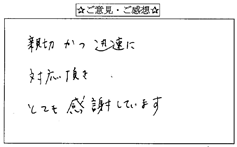 ☆ご意見・ご感想☆
親切かつ迅速に
対応頂き
とても感謝しています